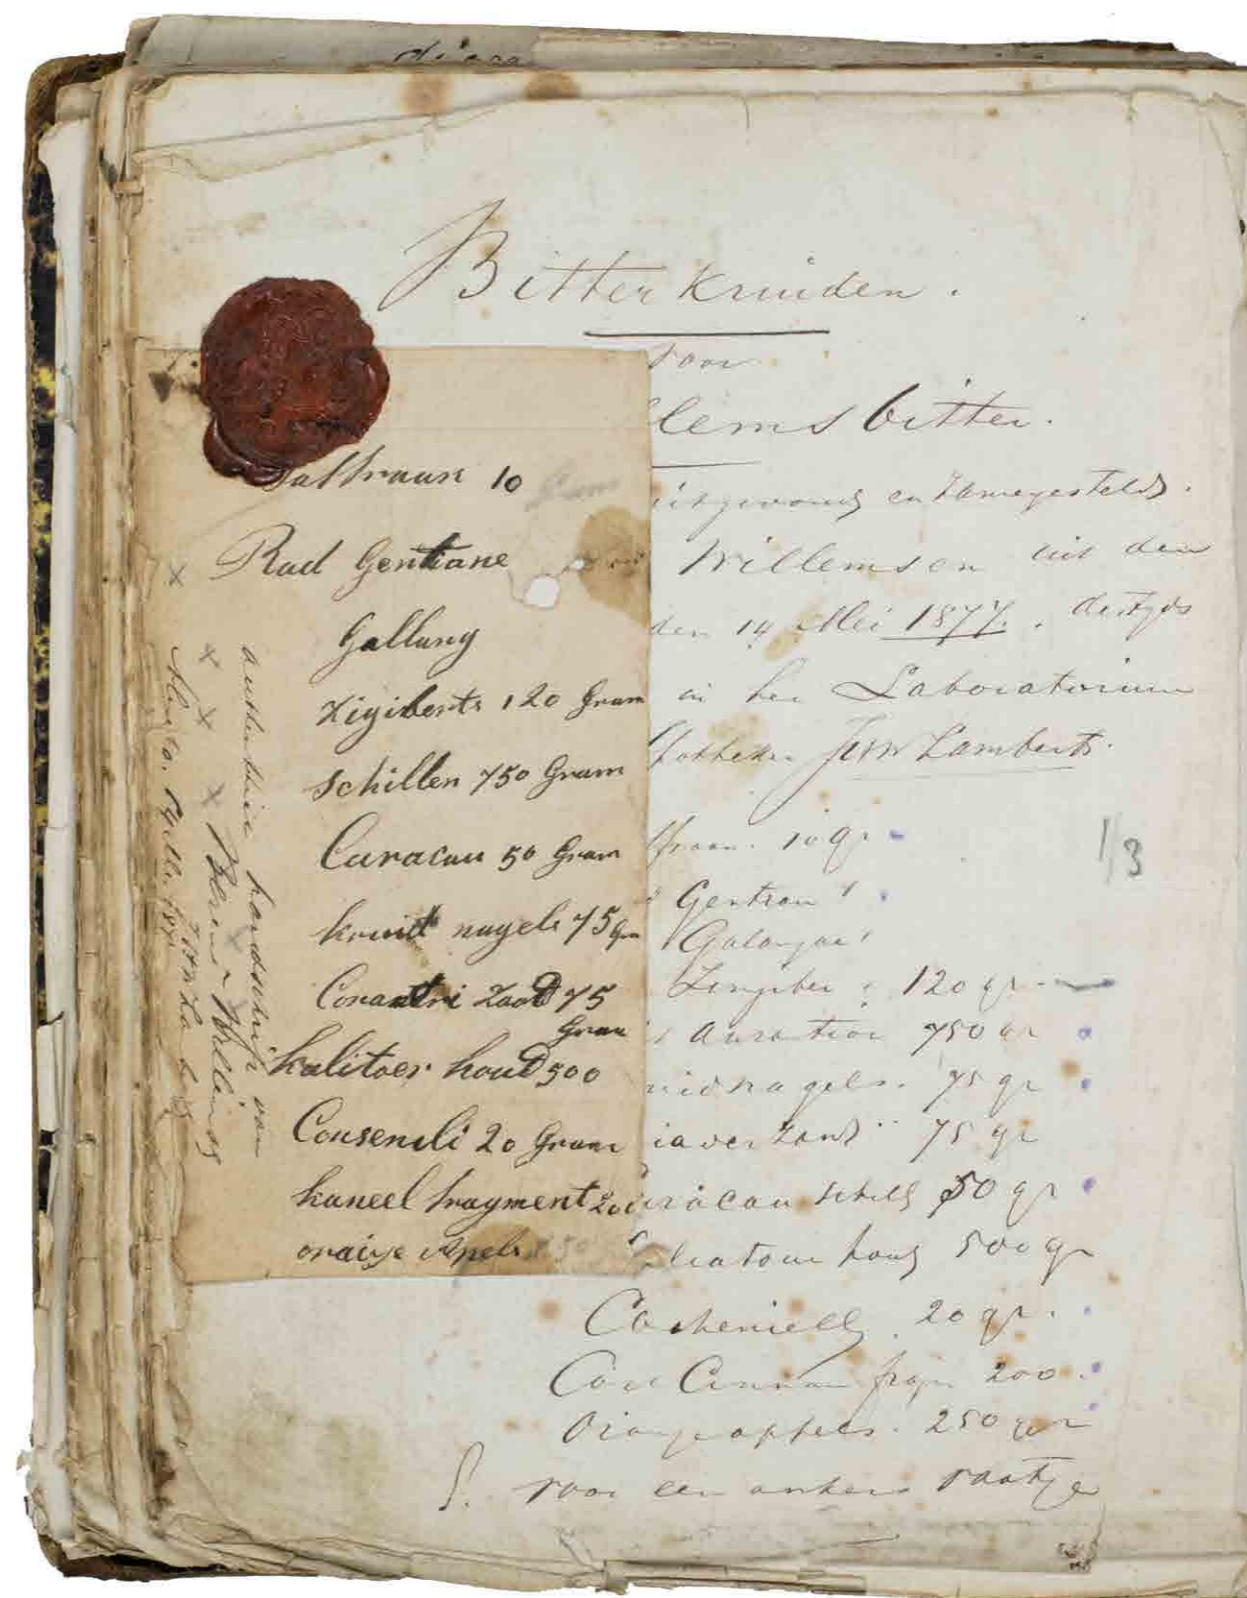 Bitterkruiden.
voor
lems bitter.
en
Willemsen uit den
den 14 Mei 1877. destyds
in het Laboratorium
Lamberts.
ffraan. 10 gr
Gentian "
Galangae "
Zingiber " 120 gr
Aurantior 750 gr
uidnagels. 75 gr
iaverzand " 75 gr
uracau schill 50 gr
liatour houd 500 gr
Cochenielle. 20 gr.
Cort Cinnam fragm 200.
Oranjeappels. 250 gr
voor een ankers vaatje
1/3
Saffraan 10 Gram
Rad Gentiane
Gallung
Zigiberts 120 Gram
Schillen 750 Gram
Curacau 50 Gram
kruit nagels 75 Gm
Coriantri Zaad 75
Gram
kalitoer houd 500
Consenili 20 Gram
kaneel fragment 200
oraige Apels 250
authentiek handschrift van
x Willems
x
x
x